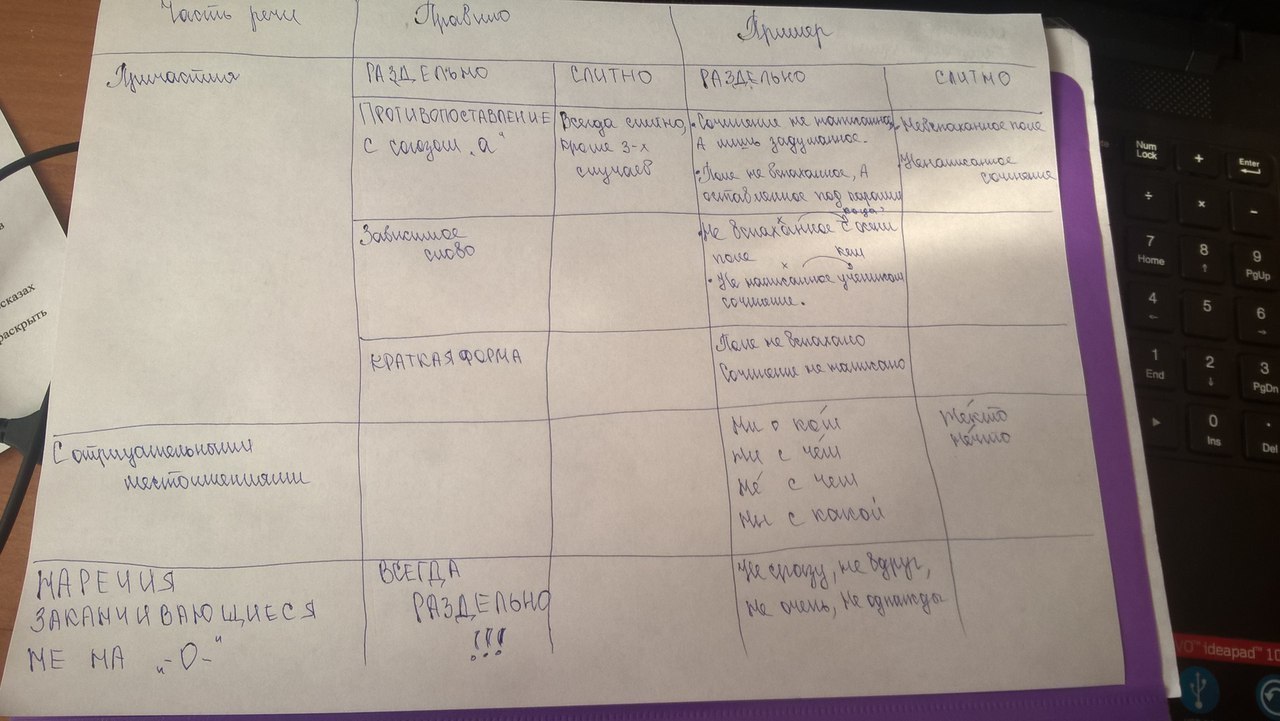 Часть речи Правило Пример
Причастия РАЗДЕЛЬНО СЛИТНО РАЗДЕЛЬНО СЛИТНО
ПРОТИВОПОСТАВЛЕНИЕ
С союзом „а"
Всегда слитно,
кроме 3-х
случаев
• Сочинение не написанное,
А лишь задуманное.
• Поле не вспаханное, А
оставленное под парами
• Невспаханное поле
• Ненаписанное
сочинение
Зависимое
слово
когда?
• Не вспаханное с осени
поле
кем
• Не написанное учеником
сочинение.
КРАТКАЯ ФОРМА
Поле не вспахано
Сочинение не написано
С отрицательными
местоимениями
Ни о ко́м
Ни с че́м
Не́ с чем
Ни с како́й
Не́кто
Не́что
НАРЕЧИЯ
ЗАКАНЧИВАЮЩИЕСЯ
НЕ НА „-О-"
ВСЕГДА
РАЗДЕЛЬНО
!!!
Не сразу, не вдруг,
Не очень, Не однажды
сказах
раскрыть
Num
Lock
+
Enter
÷
×
-
7
Home
8
9
PgUp
4
5
6
1
End
2
3
PgDn
0
Ins
.
Del
ideapad™ 10